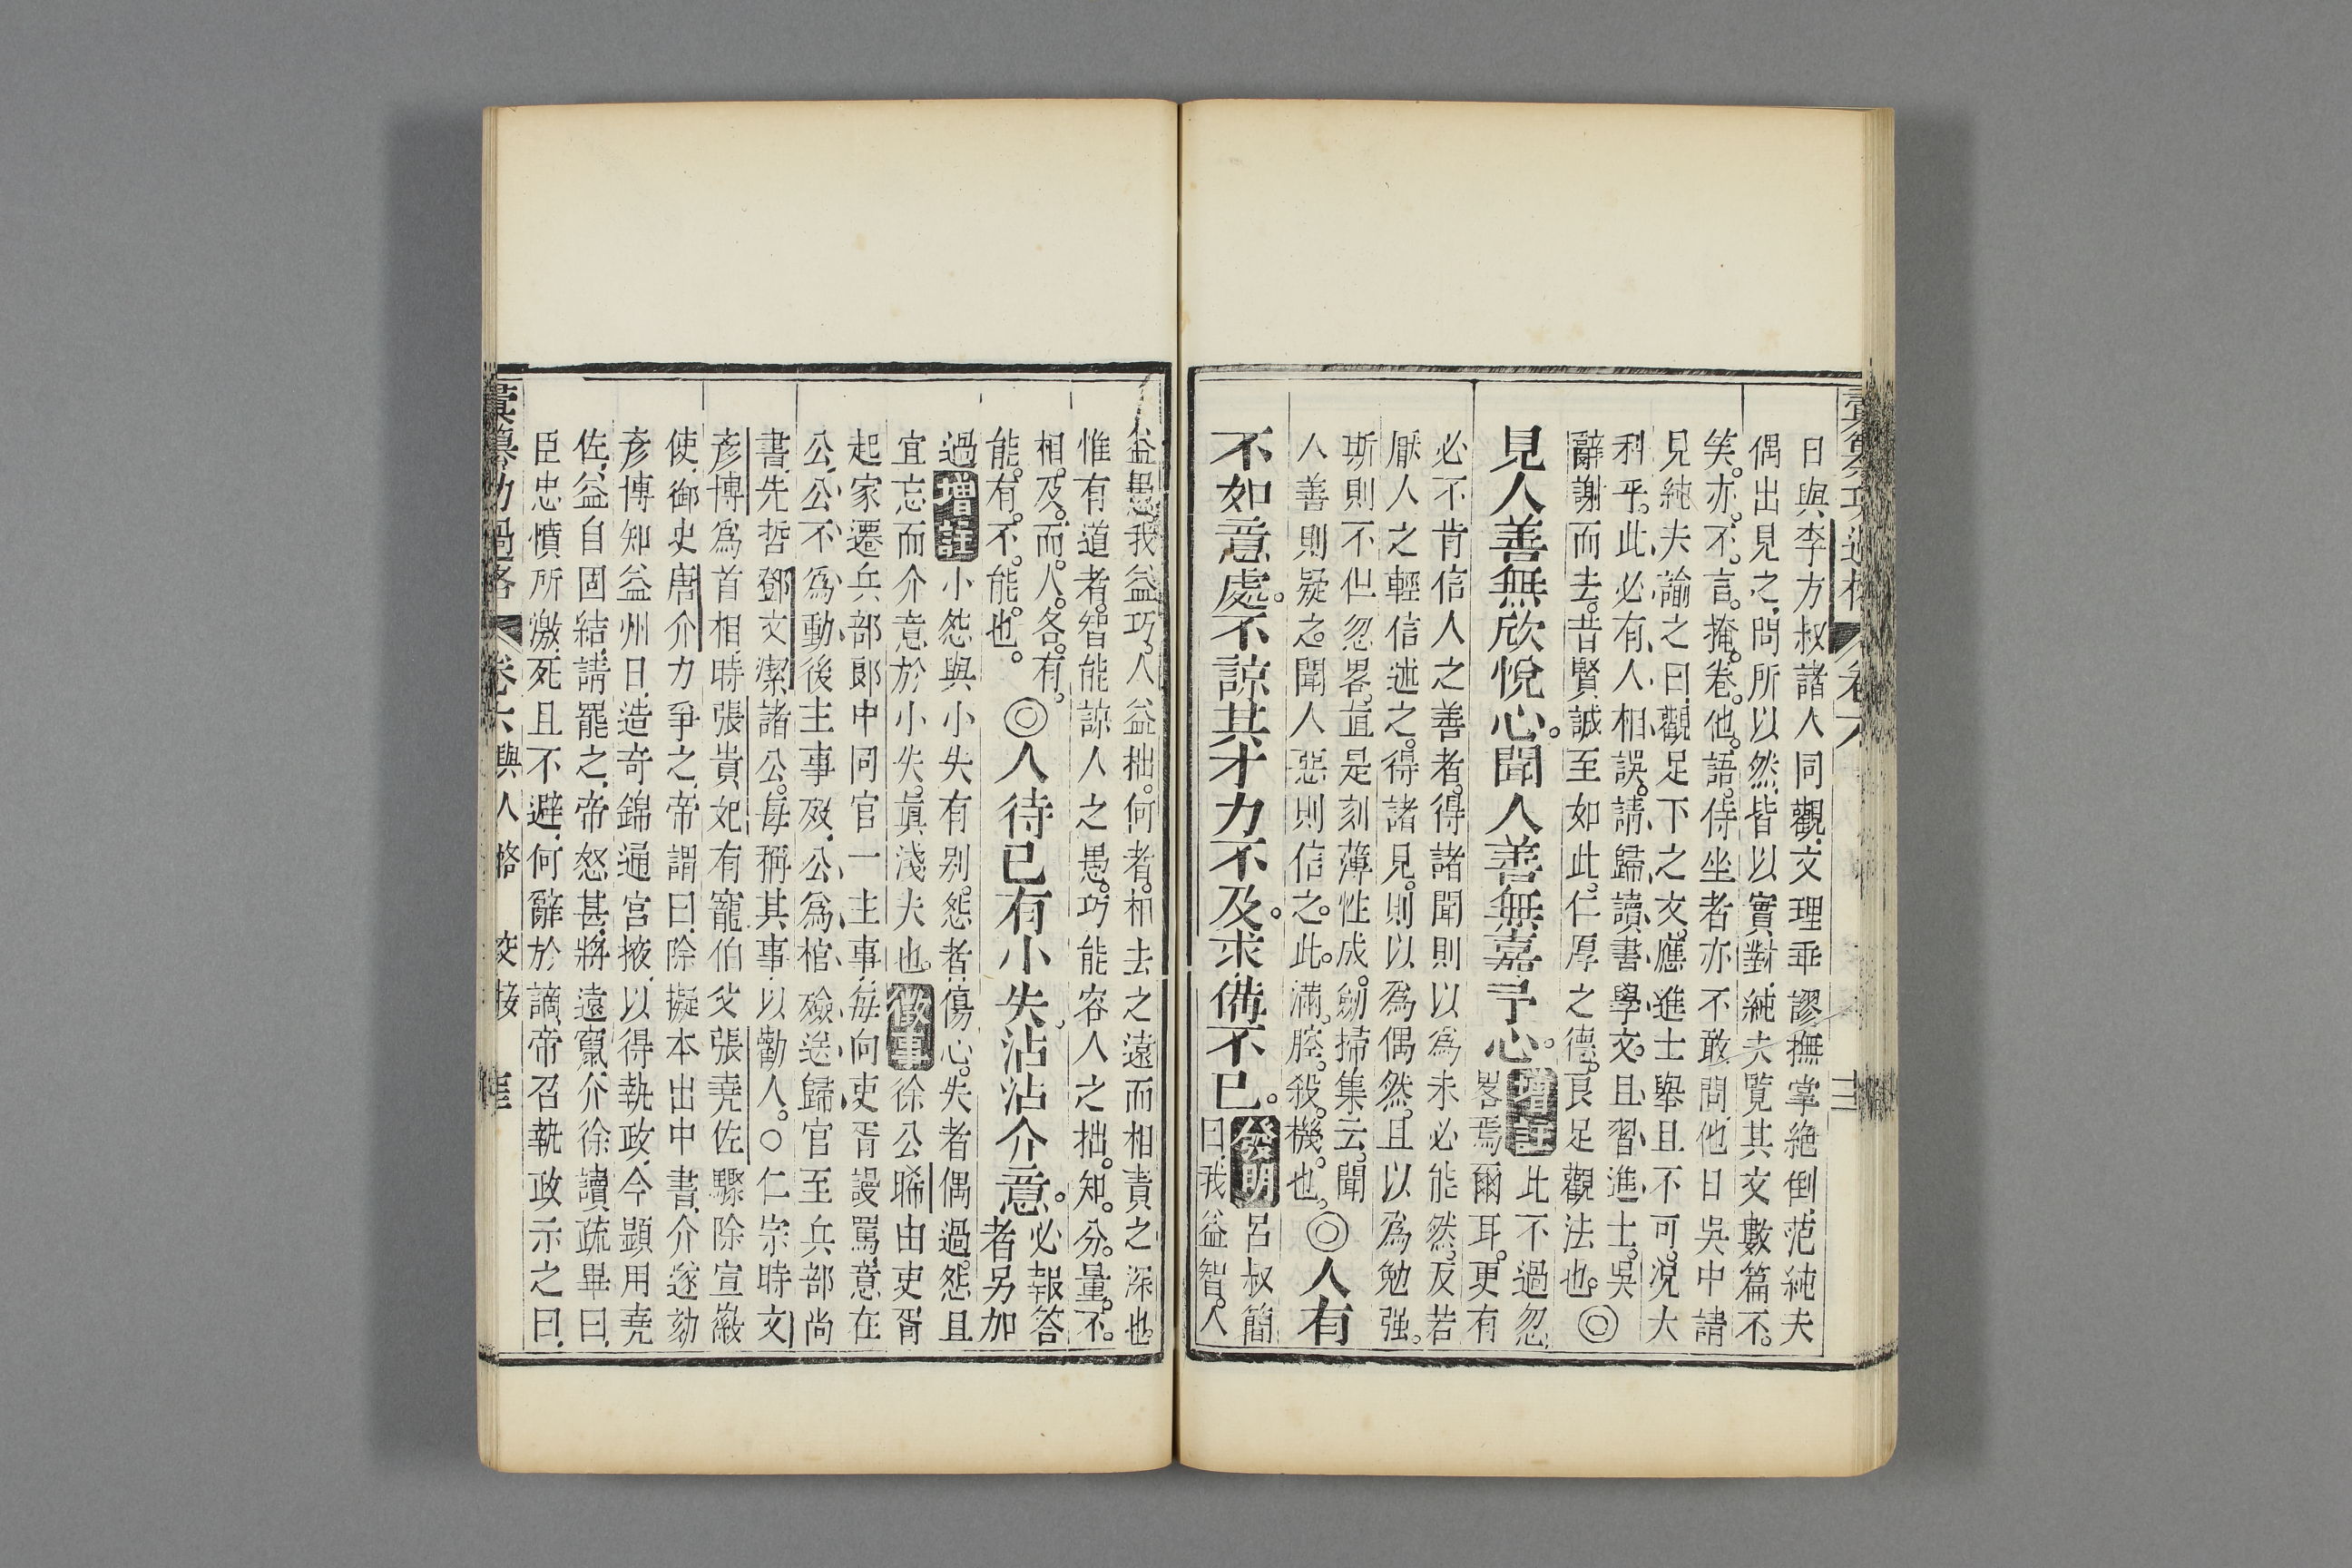 日與李方叔諸人同觀文理乖謬撫掌絶倒范純夫
偶出見之問所以然皆以實對純夫覽其文數篇不
笑亦不言掩卷他語侍坐者亦不敢問他日吳中請
見純夫諭之曰觀足下之文應進士舉且不可況大
科乎此必有人相誤請歸讀書學文且習進士吳
辭謝而去昔賢誠至如此仁厚之德良足觀法也◎
見人善無欣悅心聞人善無嘉予心增註此不過忽
畧焉爾耳更有
必不肯信人之善者得諸聞則以爲未必能然反若
厭人之輕信述之得諸見則以爲偶然且以爲勉强
斯則不但忽畧直是刻薄性成劒掃集云聞
人善則疑之聞人惡則信之此滿腔殺機也◎人有
不如意處不諒其才力不及求備不已發明呂叔簡
曰我益智人
益愚我益巧人益拙何者相去之遠而相責之深也
惟有道者智能諒人之愚巧能容人之拙知分量不
相及而人各有
能有不能也◎人待已有小失沾沾介意必報答
者另加
過增註小怨與小失有别怨者傷心失者偶過怨且
宜忘而介意於小失眞淺夫也徵事徐公晞由吏胥
起家遷兵部郎中同官一主事每向吏胥謾罵意在
公公不爲動後主事歿公爲棺殮送歸官至兵部尚
書先哲鄧文潔諸公每稱其事以勸人○仁宗時文
彥博爲首相時張貴妃有寵伯父張堯佐驟除宣徽
使御史唐介力爭之帝謂曰除擬本出中書介遂劾
彥博知益州日造奇錦通宮掖以得執政今顯用堯
佐益自固結請罷之帝怒甚將遠竄介徐讀疏畢曰
臣忠憤所激死且不避何辭於謫帝召執政示之曰